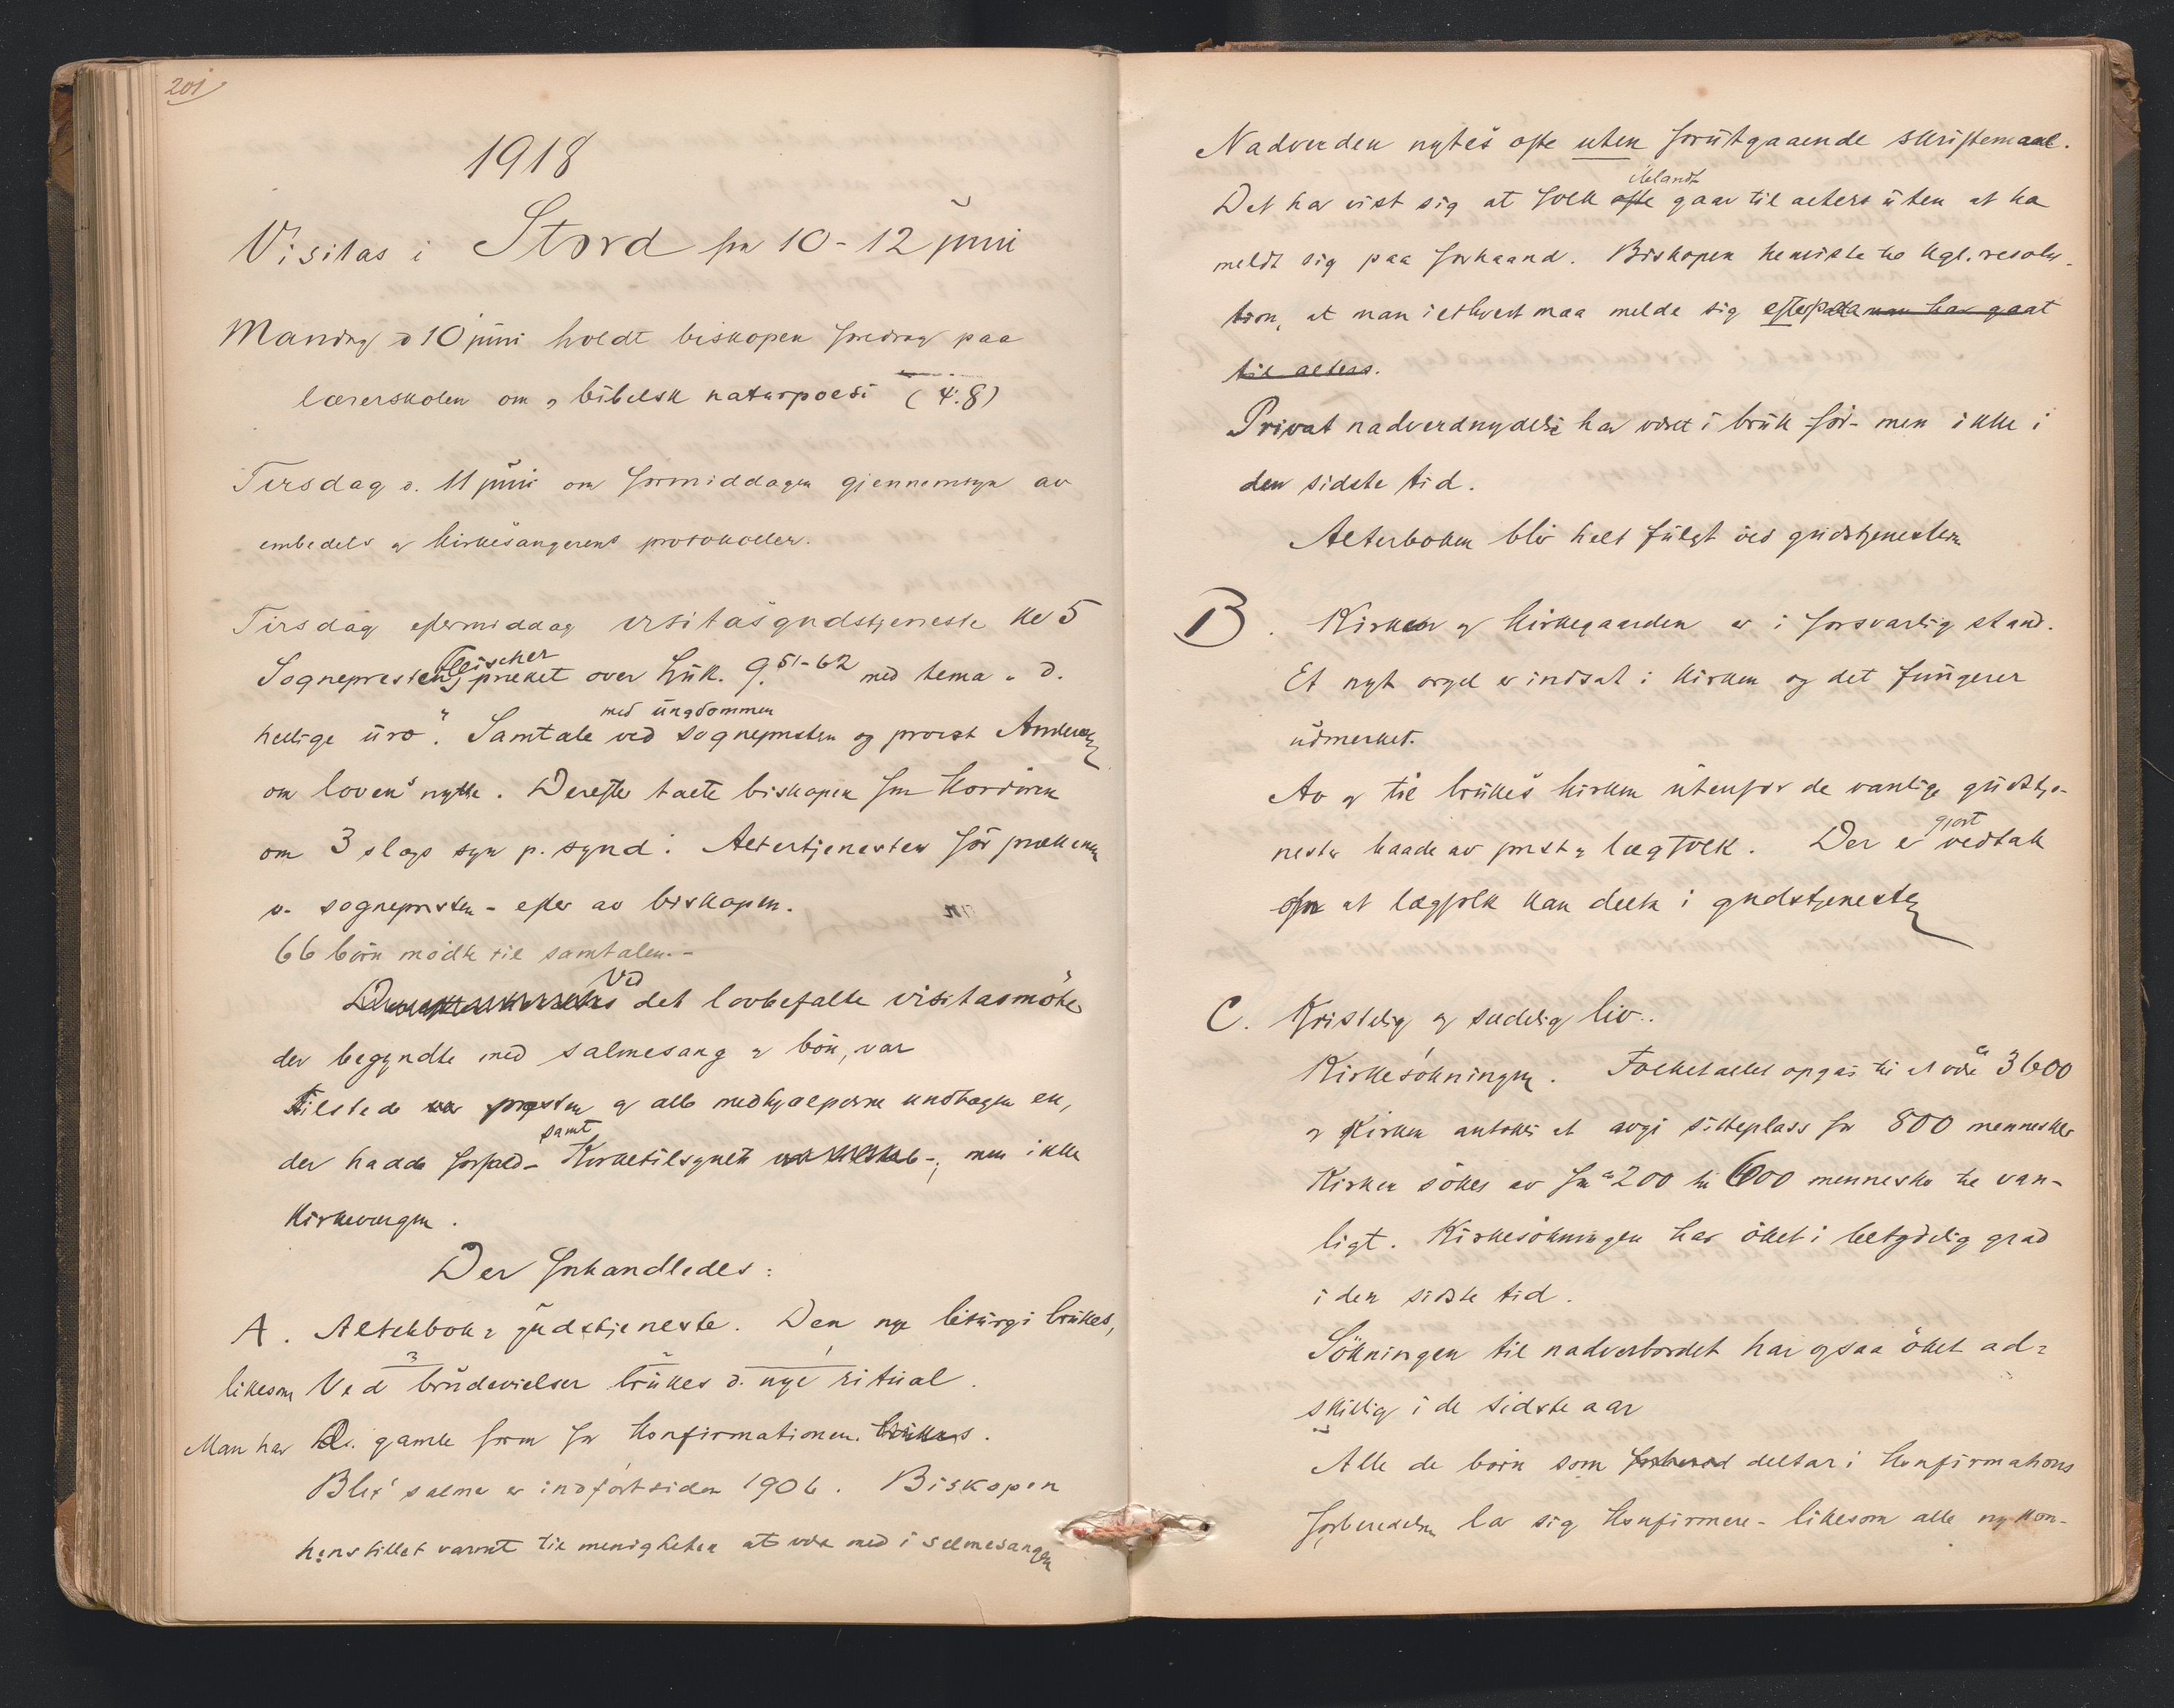 201
1918
Visitas i Stord fra 10-12 juni
Mandag d 10 juni holdt biskopen foredrag paa
lærerskolen om bibelsk naturpoesi (4.8)
Tirsdag d. 11 juni om formiddagen gjennemsyn av
embedets og kirkesangerens protokoller.
Tirsdag eftermiddag visitasgudstjeneste kl 5
Sognepresten Fleischer præket over Luk. 9.51-62 med tema „d.
hellige uro". Samtale med ungdommen ved sognepresten og provst Andersen
om lovens nytte. Derefter talte biskopen fra Kordören
om 3 slags syn p. synd: Altertjenesten för prækenen
v. sognepresten - efter av biskopen.
66 börn mödte til samtalen.-
Ved det lovbefalte visitasmöte
der begyndte med salmesang og bön, var
tilstede presten og alle medhjælperne undtagen en,
der hadde forfald - samt Kirketilsynet -, men ikke
Kirkevergen.
Der forhandledes:
A. Alterbok & gudstjeneste. Den nye liturgi brukes,
likesom Ved brudevielser brukes d. nye ritual.
Man har d. gamle form for Konfirmationen. brukes.
Blix' salmer er indfört siden 1906. Biskopen
henstillet varmt til menigheten at være med i salmesangen
Nadverden nytes ofte uten forutgaaende skriftemaal.
Det har vist sig at folk ofte iblandt gaar til alters uten at ha
meldt sig paa forhaand. Biskopen henviste til kgl. resolu-
tion, at man i ethvert maa melde sig efterpaa man har gaat
til alters.
Privat nadverdnydelse har været i bruk för - men ikke i
den sidste tid.
Alterboken blir helt fulgt ved gudstjenesten
B. Kirken og kirkegaarden er i forsvarlig stand.
Et nyt orgel er indsat i kirken og det fungerer
udmerket.
Av og til brukes kirken utenfor de vanlige gudstje-
nester baade av prest og lægfolk. Der er gjort vedtak
om at lægfolk kan delta i gudstjenesten
C. Kristelig og sædelig liv.
Kirkesökningen. Folketallet opgis til at være ca 3600
og Kirken antokes at avgi sitteplass for 800 mennesker
Kirken sökes av fra ca 200 til 600 mennesker til van-
ligt. Kirkesökningen har öket i betydelig grad
i den sidste tid.
Sökningen til nadverbordet har ogsaa öket ad-
skillig i de sidste aar
Alle de börn som deltar i Konfirmations
forberedelsen lar sig Konfirmere - likesom alle ny kon-